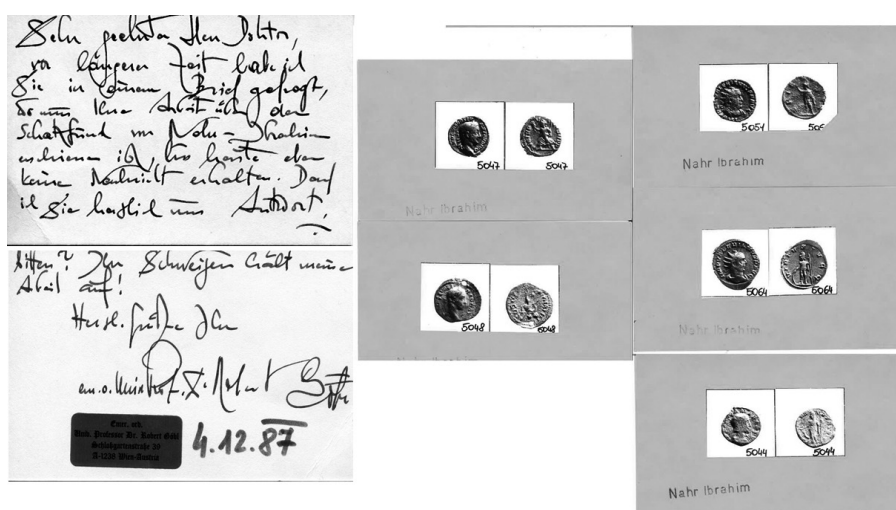 Sehr geehrter Herr Doktor,
vor längerer Zeit habe ich
Sie in einem Brief gefragt,
ob nun Ihre Arbeit über den
Schatzfund von Nahr-Ibrahim
erschienen ist, bis heute aber
keine Nachricht erhalten. Darf
ich Sie herzlich um Antwort
bitten? Ihr Schweigen hält meine
Arbeit auf!
Herzl. Grüße Ihr
em. o. Robert Göbl
Emer. ord.
Univ. Professor Dr. Robert Göbl
Schloßgartenstraße
A-1238 Wien-Austria
4.12.87
5047
5047
Nahr Ibrahim
5048
5048
5051
Nahr Ibrahim
5064
5064
Nahr Ibrahim
5044
5044
Nahr Ibrahim